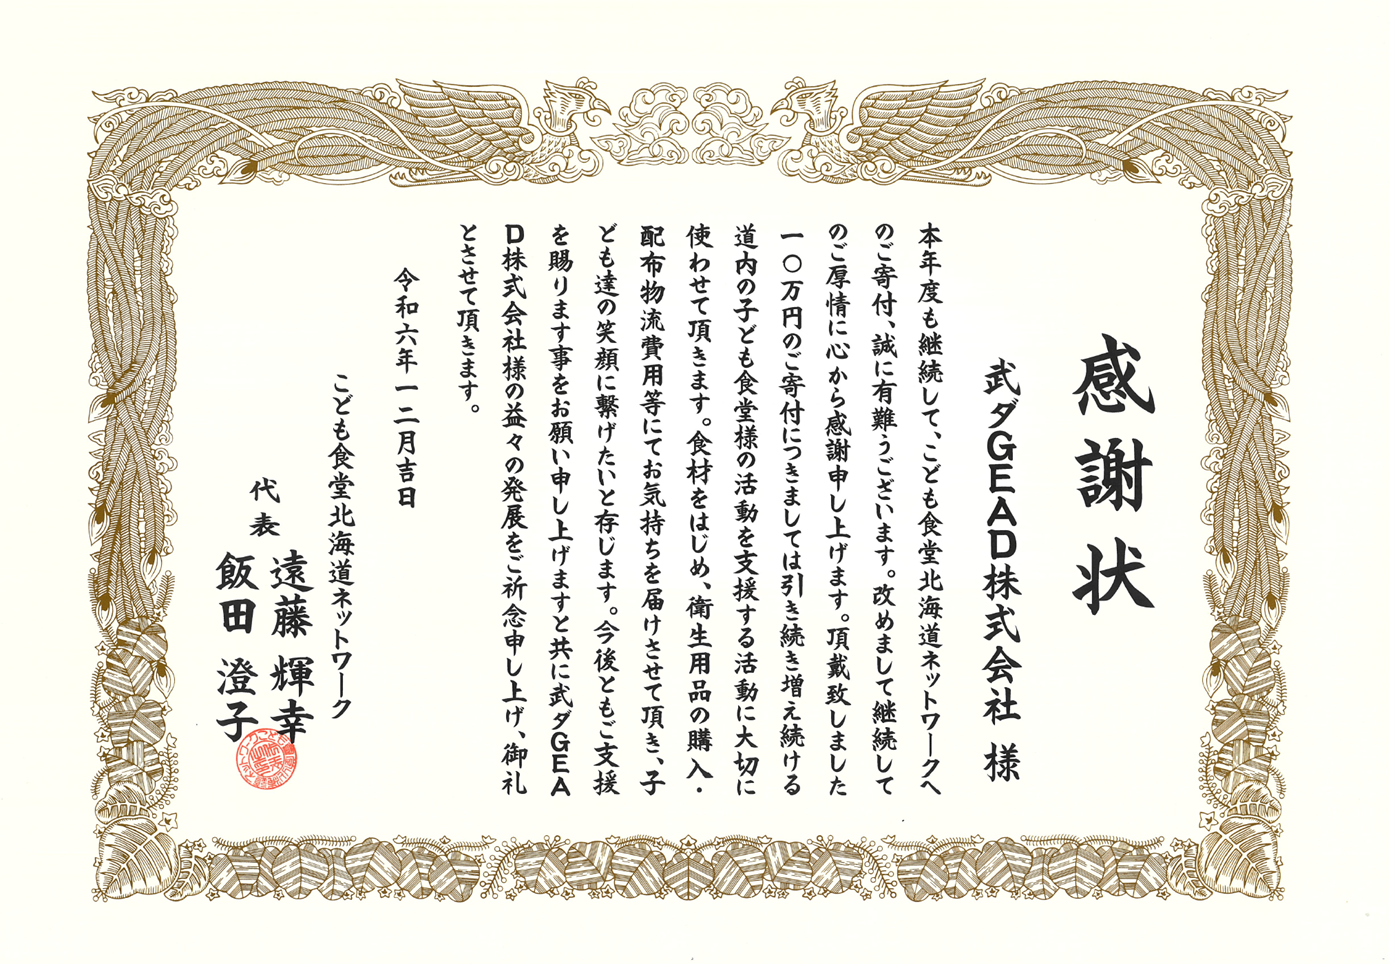 感謝状
武ダGEAD株式会社 様
本年度も継続して、こども食堂北海道ネットワークへ
のご寄付、誠に有難うございます。改めまして継続して
のご厚情に心から感謝申し上げます。頂戴致しました
一〇万円のご寄付につきましては引き続き増え続ける
道内の子ども食堂様の活動を支援する活動に大切に
使わせて頂きます。食材をはじめ、衛生用品の購入・
配布物流費用等にてお気持ちを届けさせて頂き、子
ども達の笑顔に繋げたいと存じます。今後ともご支援
を賜ります事をお願い申し上げますと共に武ダGEA
D株式会社様の益々の発展をご祈念申し上げ、御礼
とさせて頂きます。
令和六年一二月吉日
こども食堂北海道ネットワーク
代表 遠藤 輝幸
飯田 澄子